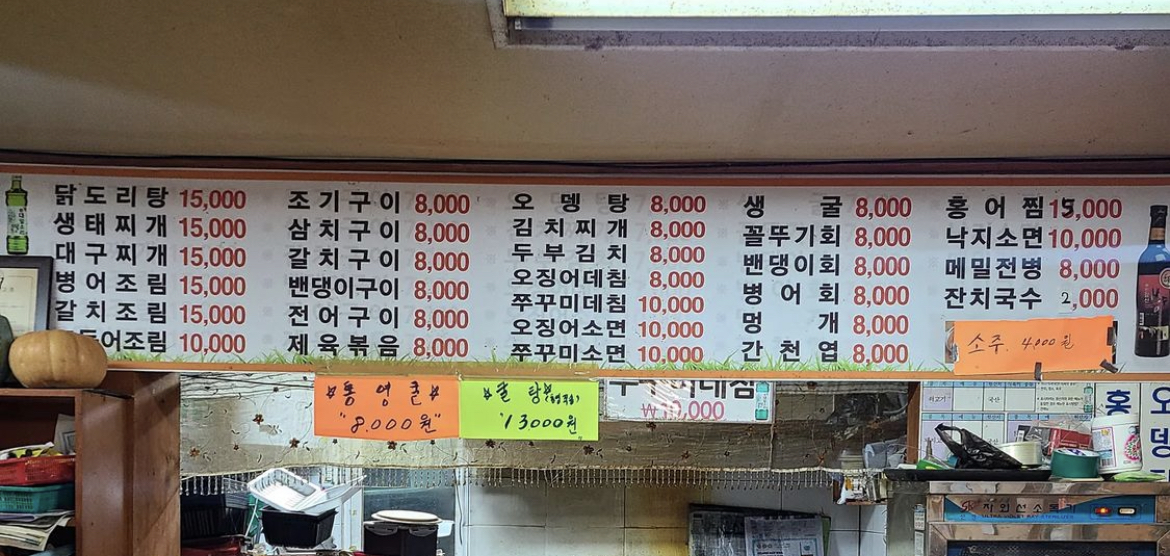 닭도리탕 15,000
생태찌개 15,000
대구찌개 15,000
병어조림 15,000
갈치조림 15,000
어조림 10,000
조기구이 8,000
삼치구이 8,000
갈치구이 8,000
밴댕이구이 8,000
전어구이 8,000
제육볶음 8,000
오뎅탕 8,000
김치찌개 8,000
두부김치 8,000
오징어데침 8,000
쭈꾸미데침 10,000
오징어소면 10,000
쭈꾸미소면 10,000
생굴 8,000
꼴뚜기회 8,000
밴댕이회 8,000
병어회 8,000
멍개 8,000
간천엽 8,000
홍어찜 15,000
낙지소면 10,000
메밀전병 8,000
잔치국수 2,000
소주. 4,000원
통영굴
"8.000원"
굴탕
"13000원
₩10,000
자외선소독기
홍
오
뎅